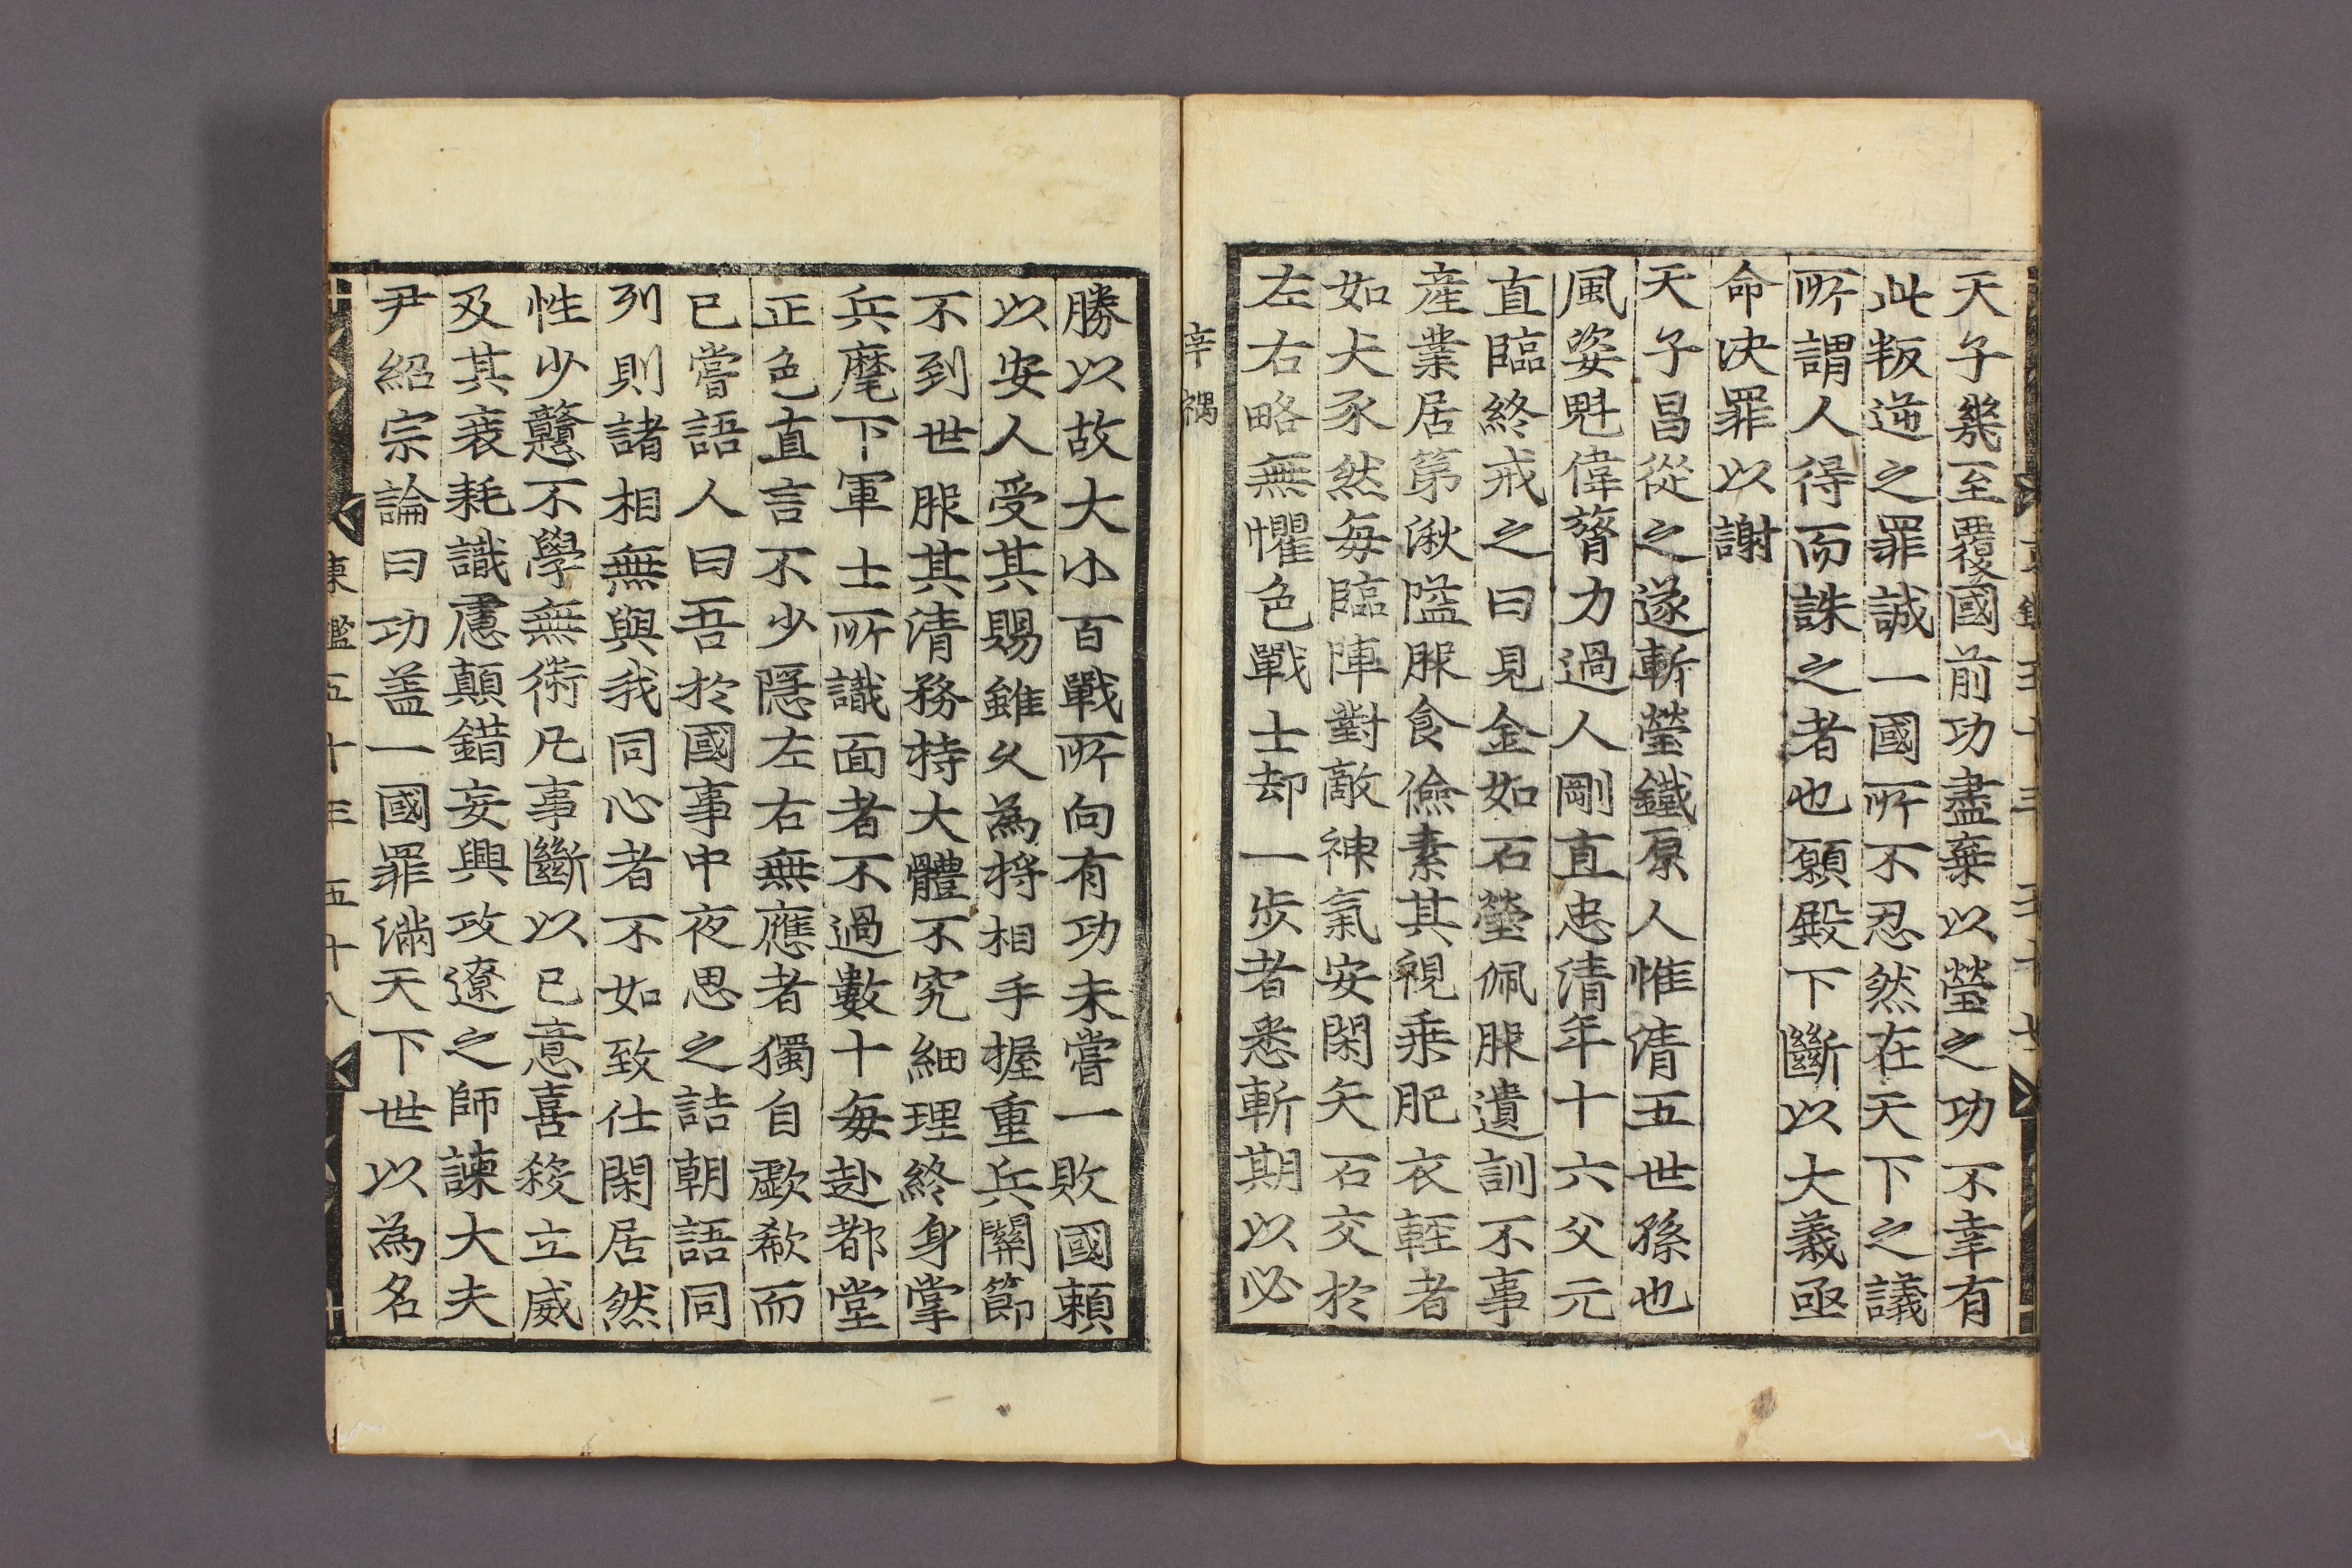 天子幾至覆國前功盡棄以瑩之功不幸有
此叛逆之罪誠一國所不忍然在天下之議
所謂人得而誅之者也願殿下斷以大義亟
命决罪以謝
天子昌從之遂斬瑩鐵原人惟淸五世孫也
風姿魁偉膂力過人剛直忠清年十六父元
直臨終戒之曰見金如石瑩佩服遺訓不事
産業居第湫隘服食儉素其視乗肥衣輕者
如犬豕然每臨陣對敵神氣安閑矢石交於
左右略無懼色戰士却一步者悉斬期以必
辛禑
勝以故大小百戰所向有功未嘗一敗國賴
以安人受其賜雖久為將相手握重兵關節
不到世服其清務持大體不究細理終身掌
兵麾下軍士所識面者不過數十每赴都堂
正色直言不少隱左右無應者獨自歔欷而
已嘗語人曰吾於國事中夜思之詰朝語同
列則諸相無與我同心者不如致仕閑居然
性少戇不學無術凡事斷以己意喜殺立威
及其衰耗識慮顛錯妄興攻遼之師諫大夫
尹紹宗論曰功盖一國罪滿天下世以為名
東鑑五十三 五十八